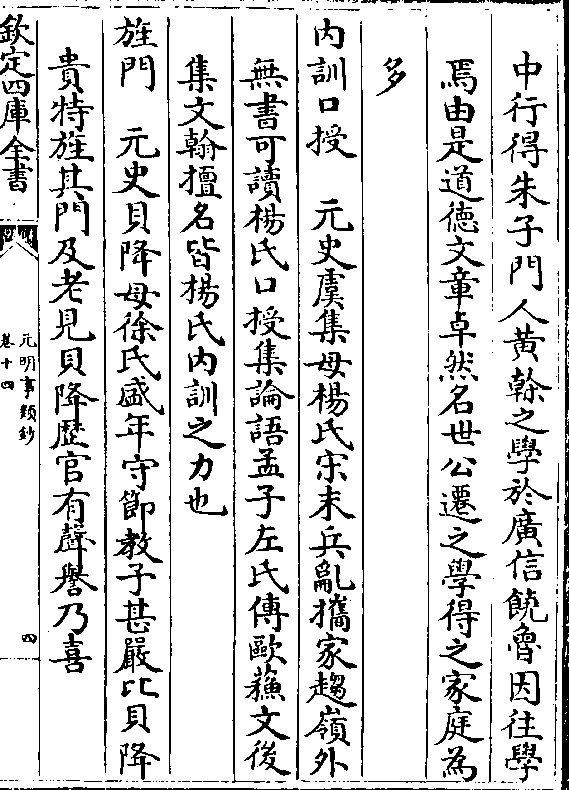 中行得朱子門人黄榦之學於廣信饒魯因往學
焉由是道徳文章卓然名世公遷之學得之家庭為
多
内訓口授　元史虞集母楊氏宋末兵亂攜家趨嶺外
無書可讀楊氏口授集論語孟子左氏傳歐蘓文後
集文翰擅名皆楊氏内訓之力也
旌門　元史貝降母徐氏盛年守節教子甚嚴比貝降
貴特旌其門及老見貝降歴官有聲譽乃喜
欽定四庫全書
元明事類鈔
卷十四
四